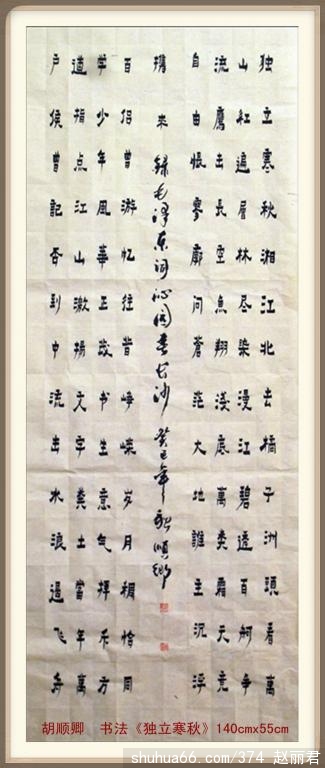 独立寒秋湘江北去橘子洲頭看萬
山红遍层林尽染漫江碧透百舸争
流鷹击長空魚翔浅底萬类霜天竞
自由怅寥廓问蒼茫大地誰主沉浮
携来 録毛泽东词沁园春长沙 癸巳年 胡順卿
百侣曾游忆往昔峥嵘岁月稠恰同
学少年風華正茂书生意气挥斥方
遒指点江山激揚文字粪土當年萬
户侯曾記否到中流击水浪遏飞舟
胡顺卿 书法《独立寒秋》140cmx55cm
shuhua66.com/374 赵丽君